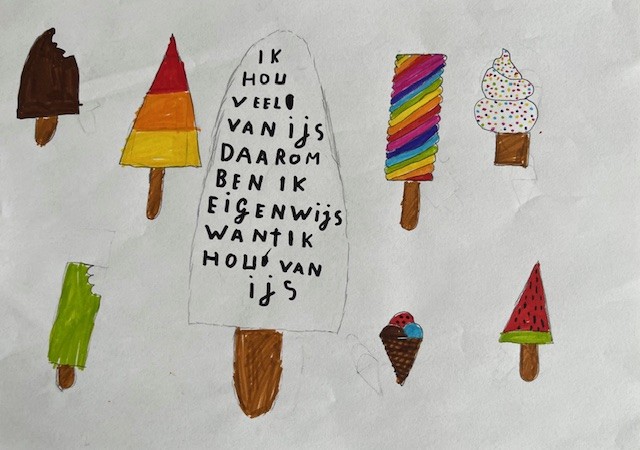 IK
HOU
VEEL
VAN ijS
DAAROM
BEN IK
EiGENWijS
WANT IK
HOU VAN
ijS